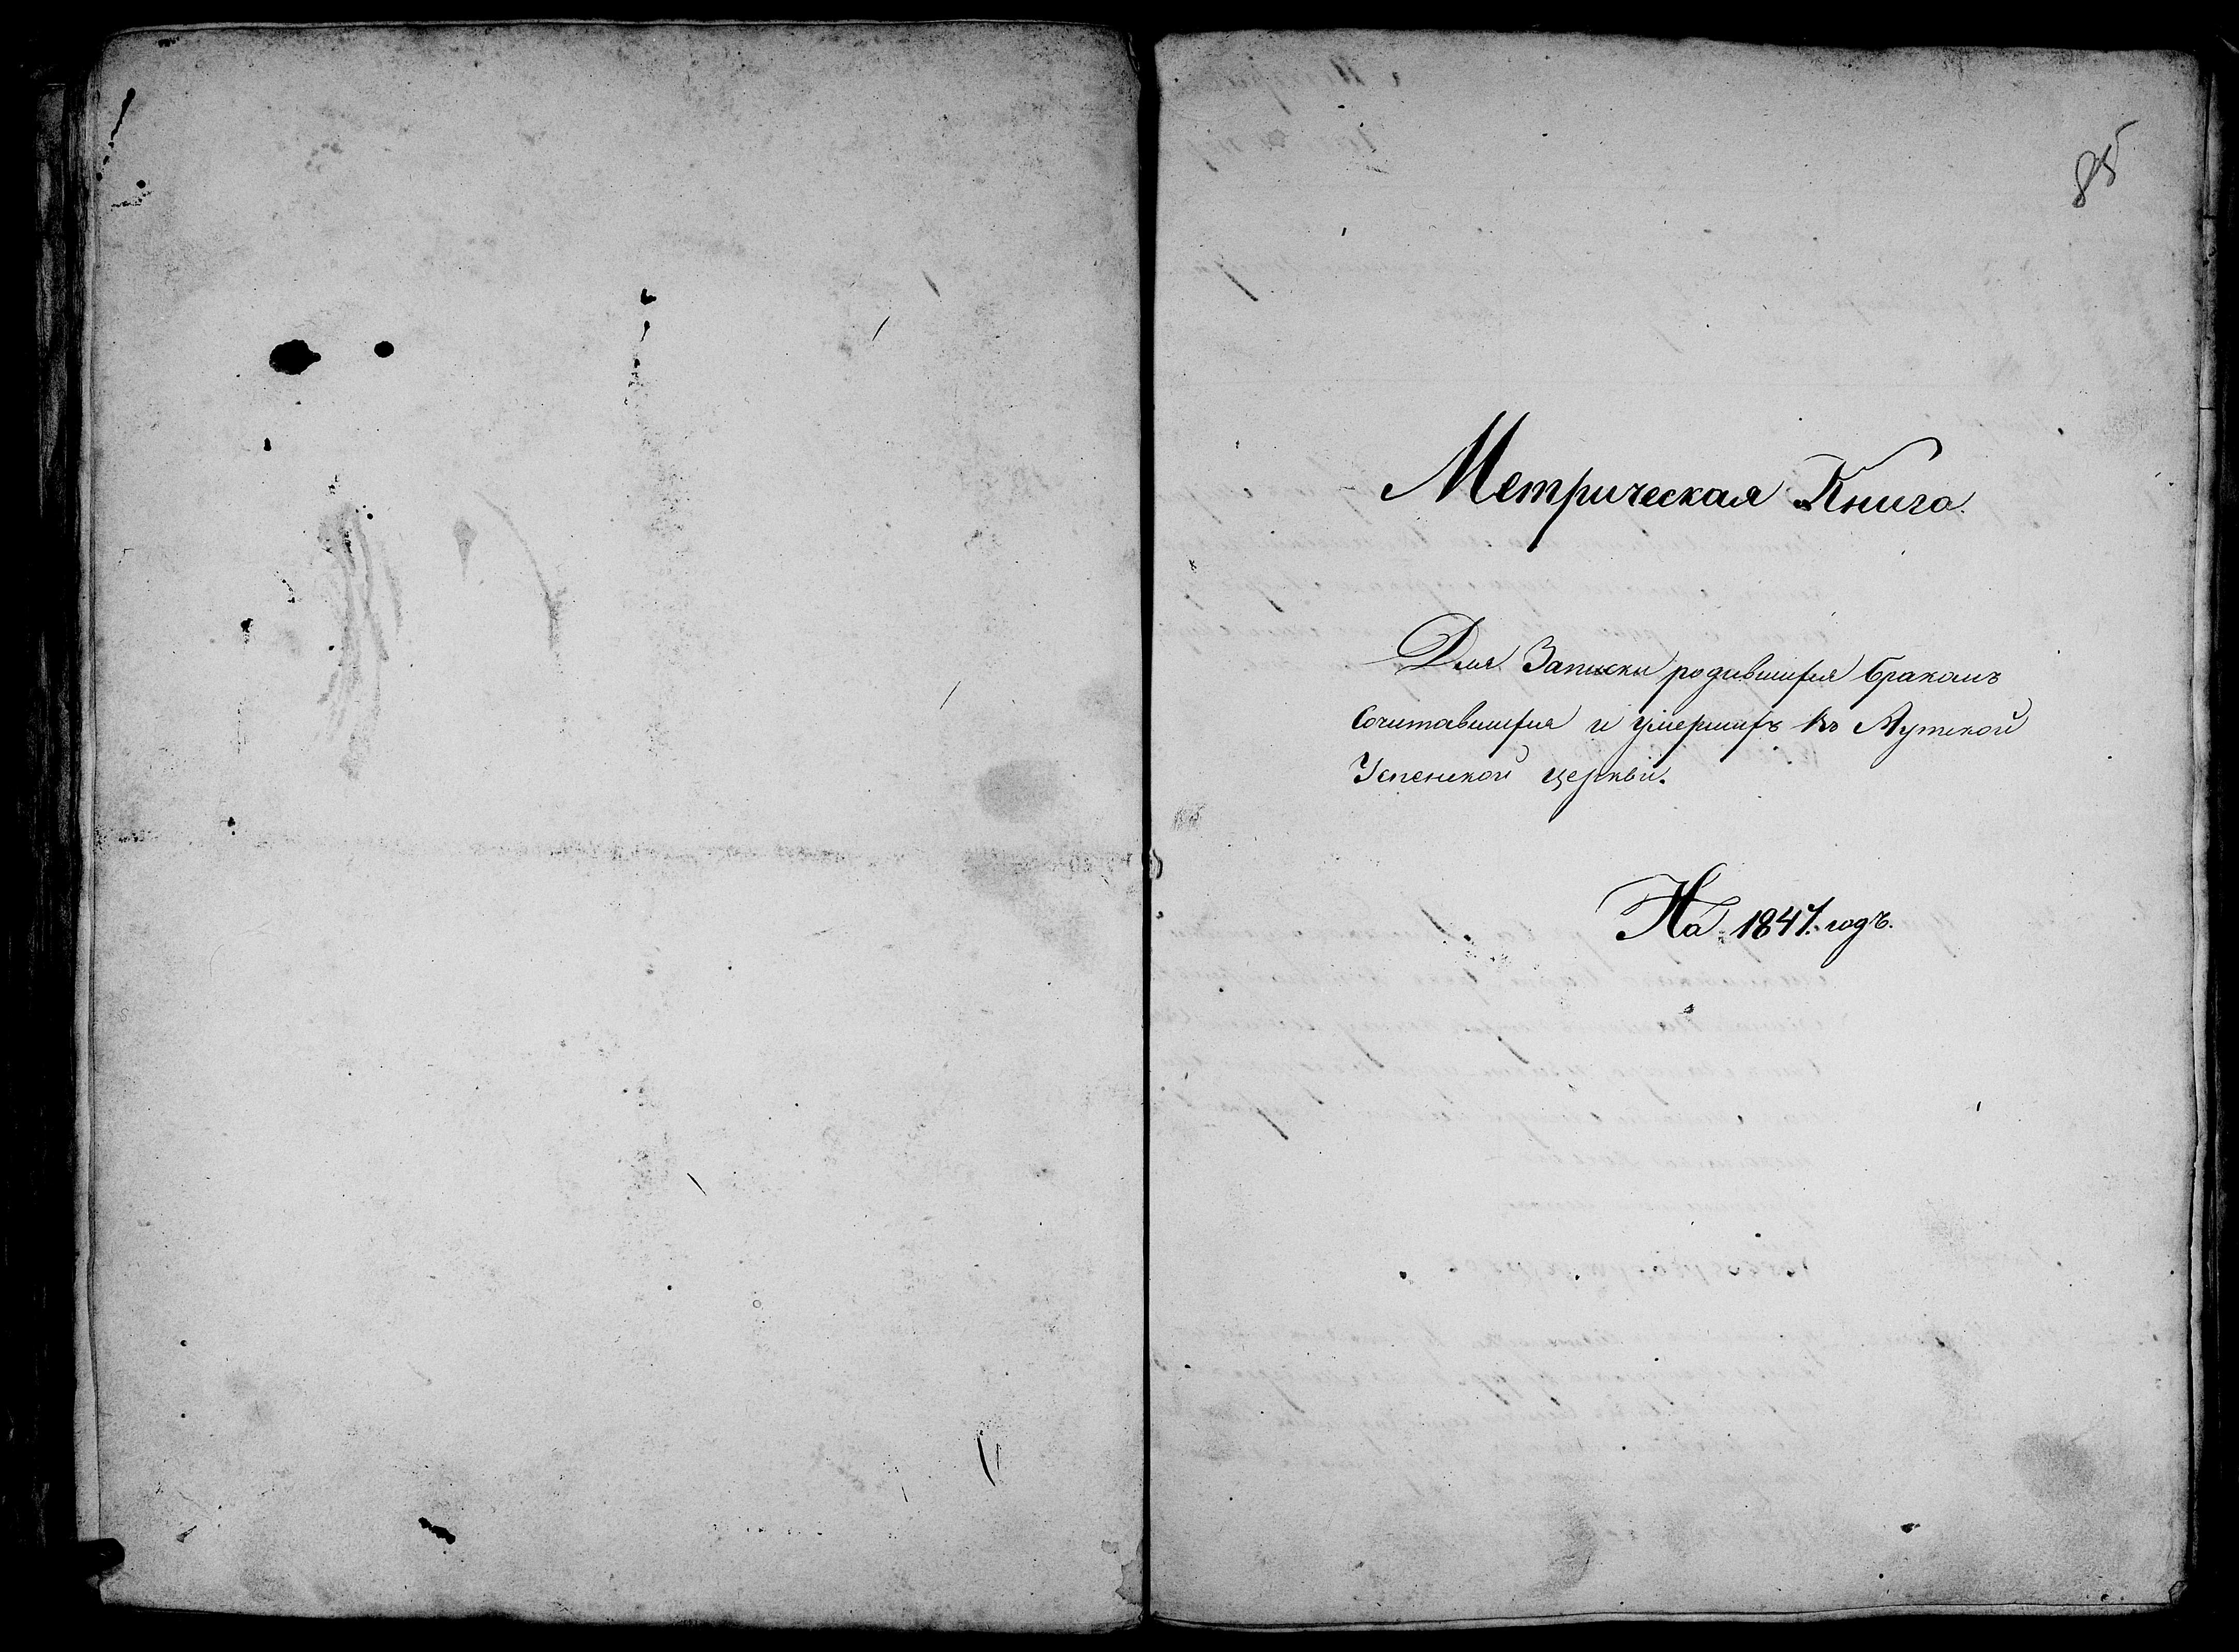 85
Метрическая Книга.
Для Записки родившихся бракомъ
Сочитавшихся и умершихъ въ Аутской
Успенской церкви.
На 1847. годъ.